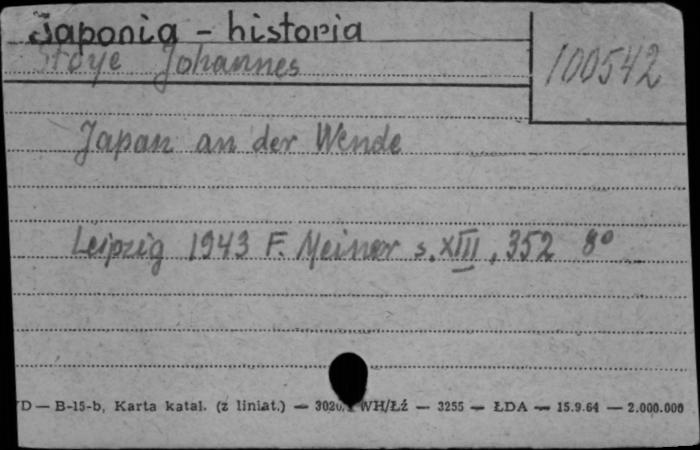 Japonia - historia
Stoye Johannes
100542
Japan an der Wende
Leipzig 1943 F. Meiner s. XIII, 352 8°
D — B-15-b, Karta katal. (z liniat.) — WH/Łź — 3255 — ŁDA — 15.9.64 — 2.000.000